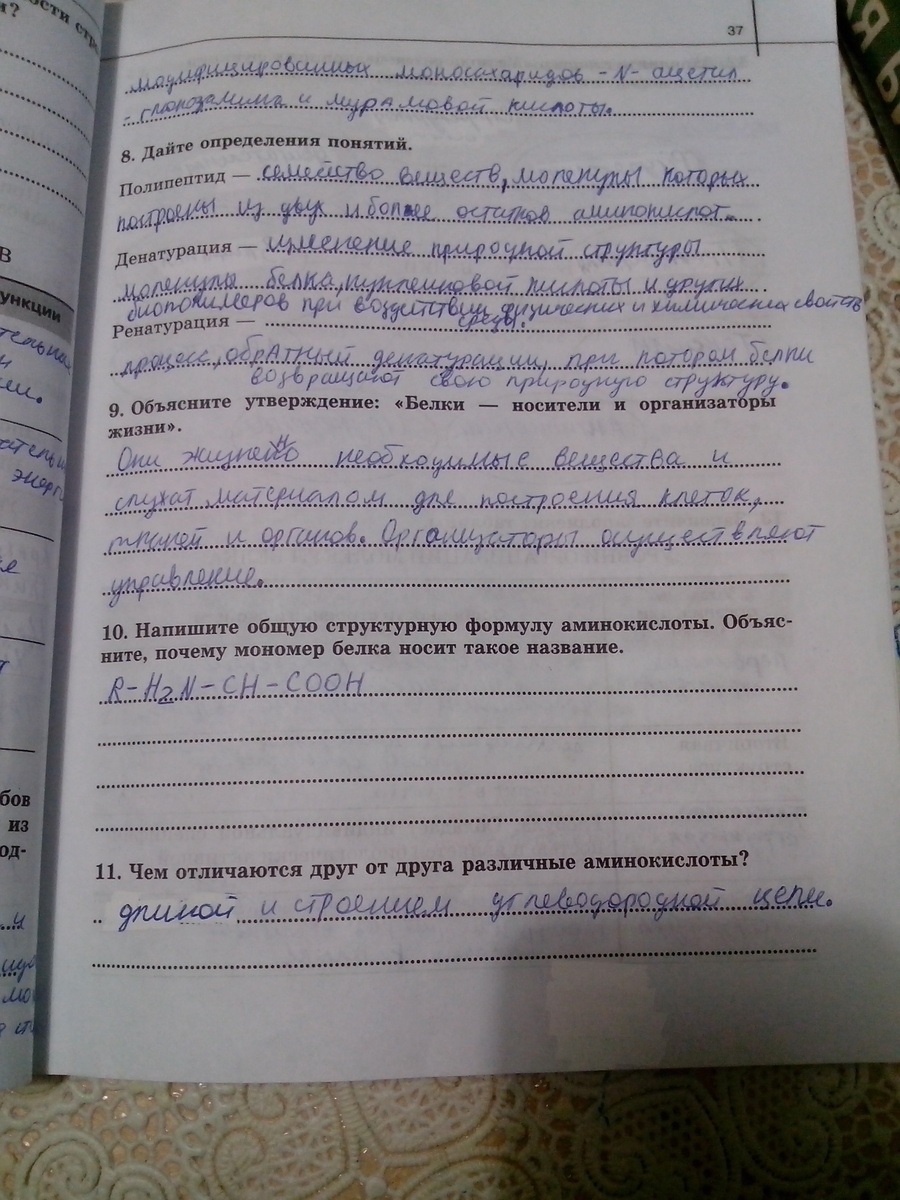 37
модифицированных моносахаридов - N- ацетил
- глюкозамина и мурамовой кислоты.
8. Дайте определения понятий.
Полипептид — семейство веществ, молекулы которых
построены из двух и более остатков аминокислот.
Денатурация — изменение природной структуры
молекулы белка, нуклеиновой кислоты и других
биополимеров при воздействии физических и химических свойств
среды.
Ренатурация —
процесс, обрАтный денатурации, при котором белки
возвращают свою природную структуру.
9. Объясните утверждение: «Белки — носители и организаторы
жизни».
Они жизненно необходимые вещества и
служат материалом для построения клеток,
тканей и органов. Организаторы осуществляют
управление.
10. Напишите общую структурную формулу аминокислоты. Объяс-
ните, почему мономер белка носит такое название.
R-H₂N-CH-COOH
11. Чем отличаются друг от друга различные аминокислоты?
длиной и строением углеводородной цепи.
ости
ункции
бов
из
од-